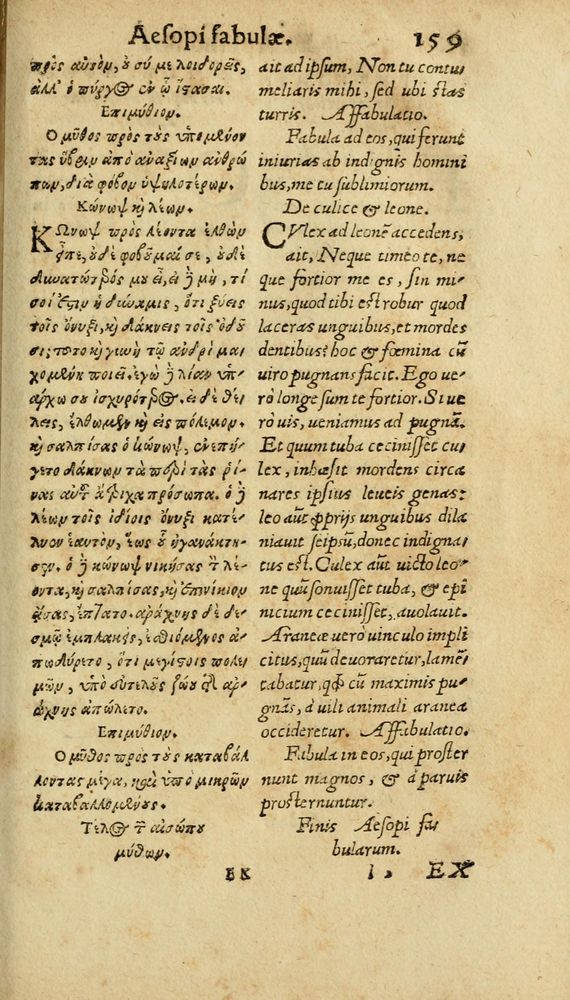 Aesopi fabulæ. 159
πρὸς αὐτὸμ, ὀ σύ με λοιδορεῖς,
ἀλλ' ὁ πύργος ἐν ᾧ ἵστασαι.
Επιμύθιομ.
Ο μῦθος πρὸς τοὺς ὑπομένον
τας ὕβριμ ἀπὸ ἀναξίωμ ἀνθρώ
πωμ, διὰ φόβομ ὑψηλοτέρωμ.
Κώνωψ κ̀ λέωμ.
ΚΩνωψ πρὸς λέοντα ἐλθὼμ
εἶπε, οὐδὲ φοβοῦμαί σε, οὐδὲ
δυνατώτερός μου εἶ, εἰ ἢ μὴ, τί
σοί ἐστιμ ἡ δύναμις, ὅτι ξύεις
τοῖς ὄνυξι, κ̀ δάκνεις τοῖς ὀδοῦ
σι; τοῦτο κ̀ γυνὴ τῷ ἀνδρὶ μα
χομένη ποιεῖ. ἐγὼ ἢ λίαν ὑπ-
άρχω σου ἰσχυρότερος. εἰ δὲ θέ-
λεις, ἔλθωμεν κ̀ εἰς πόλεμομ.
κ̀ σαλπίσας ὁ κώνωψ, ἐνεπή-
γετο δάκνωμ τὰ περὶ τὰς ῥί-
νας αὐτοῦ ἄτριχα πρόσωπα. ὁ ἢ
λέωμ τοῖς ἰδίοις ὄνυξι κατέ-
λυομ ἑαυτὸμ, ἕως οὗ ἠγανάκτη-
σεμ. ὁ ἢ κώνωψ νικήσας τὸν λέ-
οντα, κ̀ σαλπίσας, κ̀ ἐπινίκιομ
ᾄσας, ἔπτατο. ἀράχνης δὲ δε-
σμῷ ἐμπλακεὶς, ἐσθιόμενος ἀ-
πωδύρετο, ὅτι μεγίστοις πολε
μῶμ, ὑπὸ εὐτελοῦς ζώου τῆς ἀρ-
άχνης ἀπώλετο.
Επιμύθιομ.
Ο μῦθος πρὸς τοὺς καταβάλ
λοντας μέγα, καὶ ὑπὸ μικρῶμ
καταβαλλομένους.
Τέλος τῶν αἰσώπου
μύθωμ.
ait ad ipsum, Non tu contu
meliaris mihi, sed ubi stas
turris. Affabulatio.
Fabula ad eos, qui ferunt
iniurias ab indignis homini
bus, metu sublimiorum.
De culice & leone.
CVlex ad leonē accedens,
ait, Neque timeo te, ne
que fortior me es, sin mi-
nus, quod tibi est robur quod
laceras unguibus, et mordes
dentibus? hoc & fœmina cū
uiro pugnans facit. Ego ue-
rò longe sum te fortior. Si ue
rò uis, ueniamus ad pugnā.
Et quum tuba cecinisset cu-
lex, inhæsit mordens circa
nares ipsius leueis genas:
leo aūt proprijs unguibus dila
niauit seipsū, donec indigna
tus est. Culex aūt uicto leo-
ne quū sonuisset tuba, & epi
nicium cecinisset, auolauit.
Araneæ uero uinculo impli
citus, quū deuoraretur, lamē
tabatur, qđ cū maximis pu-
gnās, à uili animali aranea
occideretur. Affabulatio.
Fabula in eos, qui proster
nunt magnos, & à paruis
prosternuntur.
Finis Aesopi fa
bularum.
ΕΚ l 2 EX